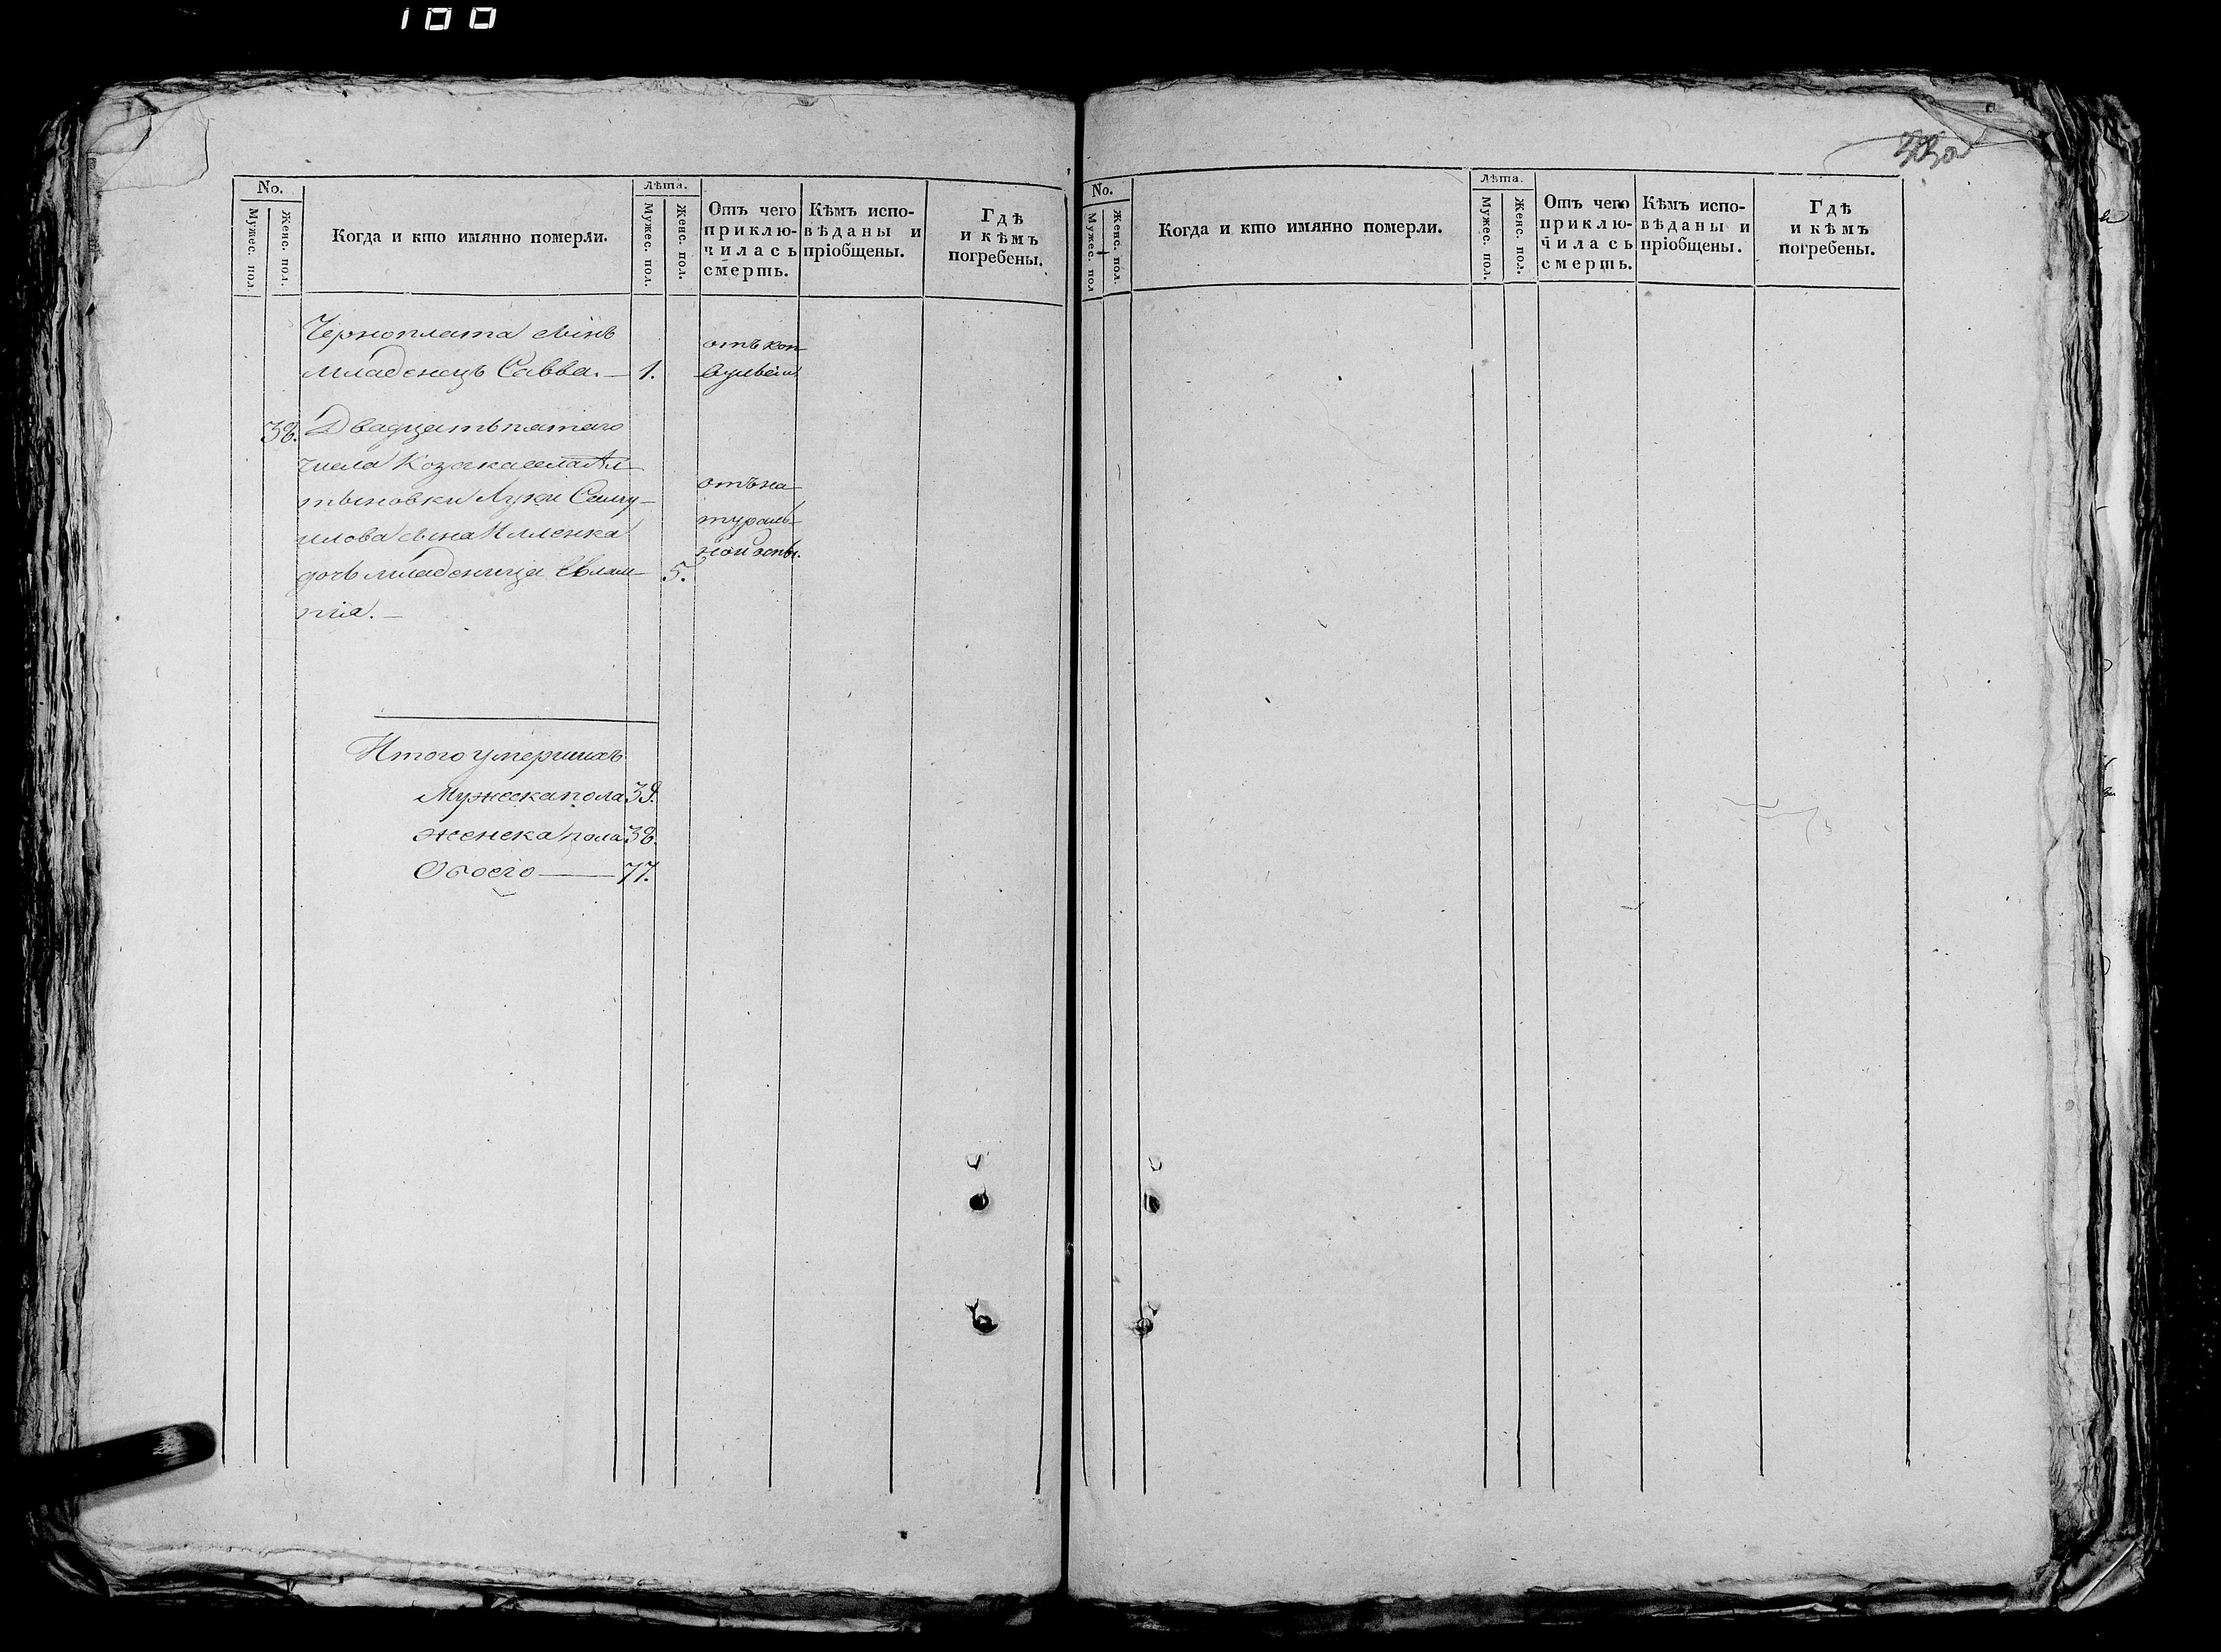 100
No.
Мужес. пол.
Женс. пол.
Когда и кто имянно померли.
Лѣта.
Мужес. пол.
Женс. пол.
Отъ чего
приклю-
чилась
смерть.
Кѣмъ испо-
вѣданы и
пріобщены.
Гдѣ
и кѣмъ
погребены.
Черноплата сынъ
младенецъ Савва. — 1.
отъ кон-
вульсіи.
38. Двадцать пятаго
числа Козака села Ал-
тыновки Луки Саму-
илова сына Илленка
дочь младеница Евлам- 5.
пія. —
отъ на-
тураль-
ной оспы.
Итого умершихъ
Мужеска пола 39.
женска пола 38.
Обоего — 77.
No.
Мужес. пол
Женс. пол.
Когда и кто имянно померли.
Лѣта.
Мужес. пол.
Женс. пол.
Отъ чего
приклю-
чилась
смерть.
Кѣмъ испо-
вѣданы и
пріобщены.
Гдѣ
и кѣмъ
погребены.